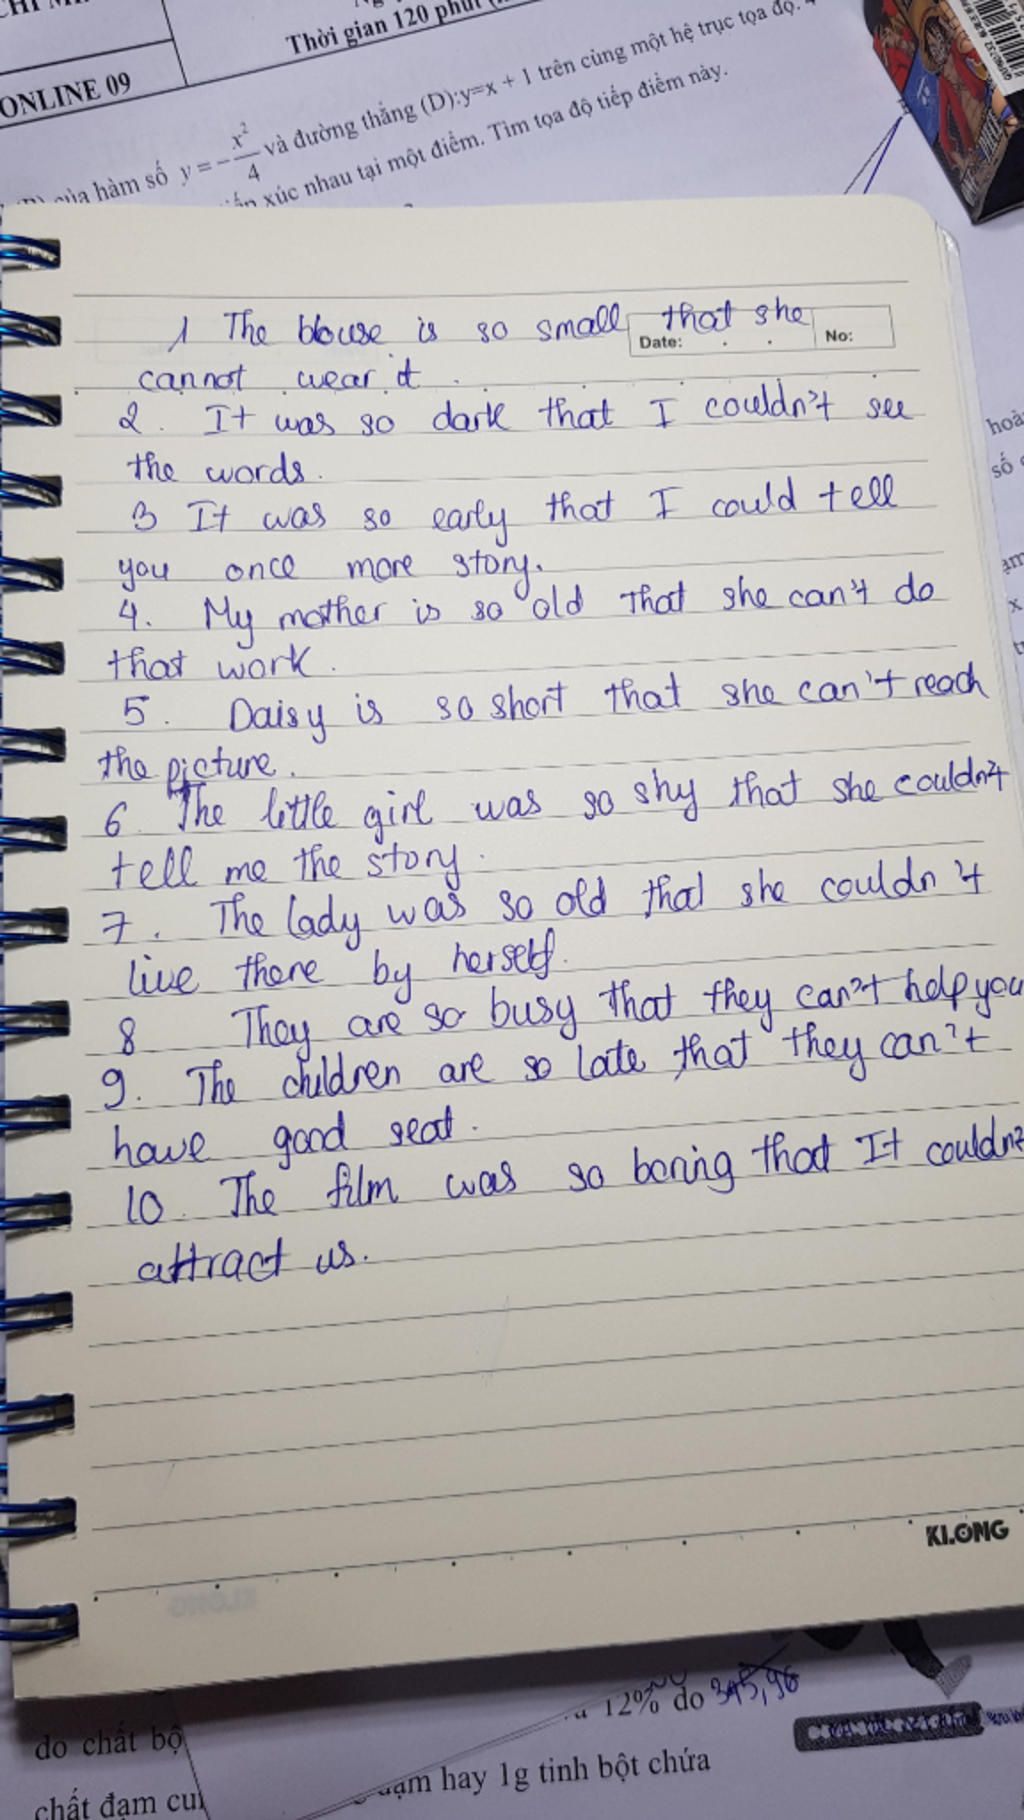 Thời gian 120 phút
ONLINE 09
của hàm số y = -x²/4 và đường thẳng (D):y=x + 1 trên cùng một hệ trục tọa độ.
xúc nhau tại một điểm. Tìm tọa độ tiếp điểm này.
1 The blouse is so small that she
Date: . . No:
cannot wear it.
2. It was so dark that I couldn't see
the words.
3 It was so early that I could tell
you once more story.
4. My mother is so old that she can't do
that work.
5. Daisy is so short that she can't reach
the picture.
6 The little girl was so shy that she couldn't
tell me the story.
7. The lady was so old that she couldn't
live there by herself.
8 They are so busy that they can't help you
9. The children are so late that they can't
have good seat.
10. The film was so boring that It couldn't
attract us.
KLONG
12% do 345,96
do chất bột
chất đạm
hay 1g tinh bột chứa